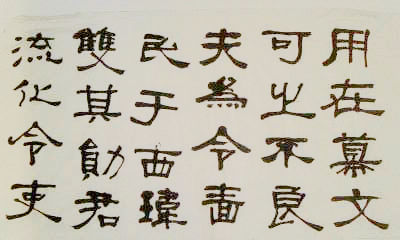 用在幕文
可之不良
夫為令嗇
民于西瑋
雙其勛君
流化令吏